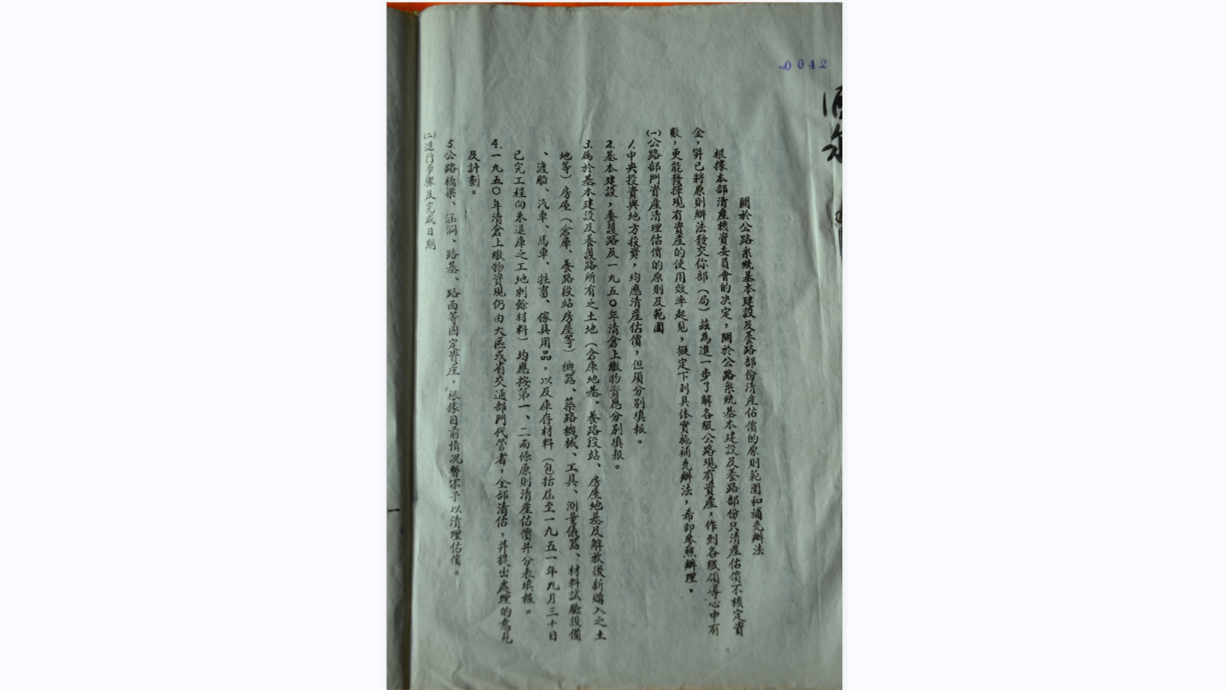 0042
關於公路系統基本建設及養路部份清產估價的原則範圍和補充辦法
根據本部清產核資委員會的決定，關於公路系統基本建設及養路部份只清產估價不核定資
金，并已將原則辦法發交你部（局）茲為進一步了解各級公路現有資產，作到各級領導心中有
數，更能發揮現有資產的使用效率起見，擬定下列具体實施補充辦法，希即參照辦理。
(一)公路部門資產清理估價的原則及範圍
1.中央投資與地方投資，均應清產估價，但須分別填報。
2.基本建設，養護路及一九五〇年清倉上繳物資應分別填報。
3.屬於基本建設及養護路所有之土地（倉庫地基、養路段站、房屋地基及解放後新購入之土
地等）房屋（倉庫、養路段站房屋等）機器、築路機械、工具、測量儀器、材料試驗設備
、渡船、汽車、馬車、牲畜、傢具用品，以及庫存材料（包括截至一九五一年九月三十日
已完工程尚未退庫之工地剩餘材料）均應按第一、二兩條原則清產估價并分表填報。
4.一九五〇年清倉上繳物資現仍由大區或省交通部門代管者，全部清估，并提出處理的意見
及計劃。
5.公路橋梁、涵洞、路基、路面等固定資產，根據目前情況暫不予以清理估價。
(二)進行步驟及完成日期